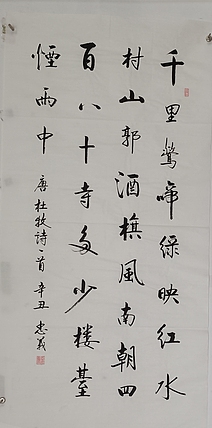 千里莺啼绿映红水
村山郭酒旗风南朝四
百八十寺多少楼台
烟雨中
唐杜牧詩一首辛丑忠義